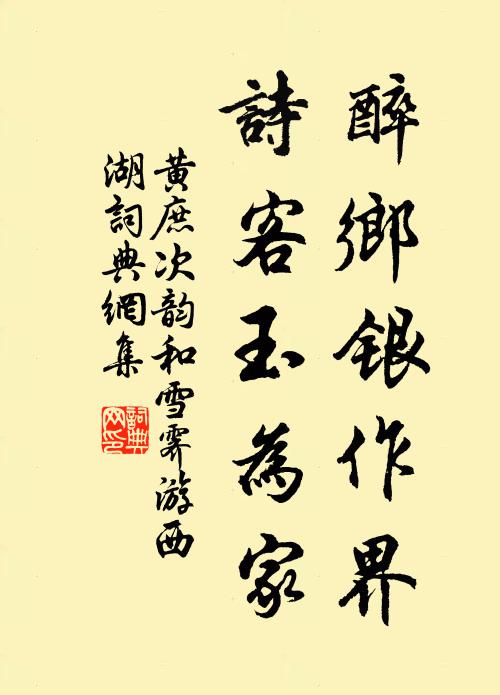 醉鄉銀作界
詩客玉為家
黃庶次韵和雪霽游西
湖詞典網集
詞典
网印